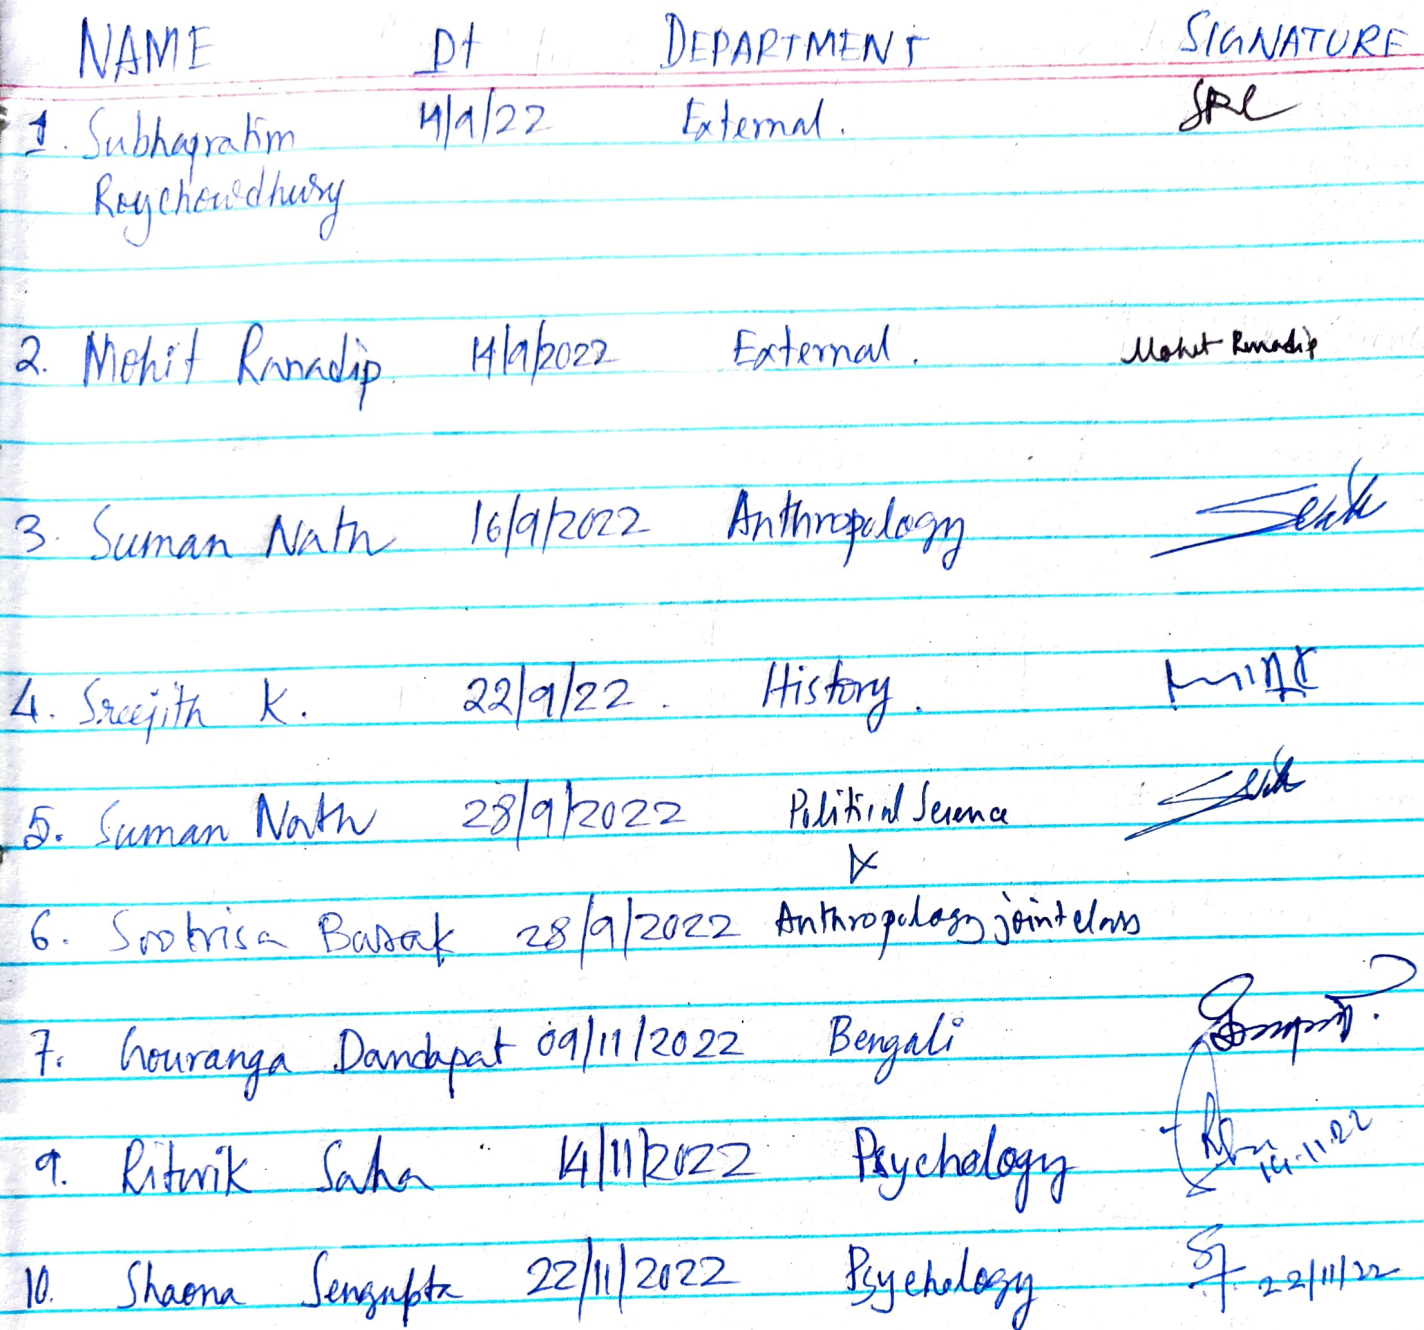 NAME Dt DEPARTMENT SIGNATURE
1. Subhapratim 14/9/22 External. SRC
Roychowdhury
2. Mohit Ranadip. 14/9/2022 External. Mohit Ranadip
3. Suman Nath 16/9/2022 Anthropology
4. Sreejith K. 22/9/22. History.
5. Suman Nath 28/9/2022 Political Science
&
6. Basak 28/9/2022 Anthropology joint class
7. Gouranga Dandapat 09/11/2022 Bengali
9. Ritwik Saha 14/11/2022 Psychology 14.11.22
10. Shaona Sengupta 22/11/2022 Psychology 22/11/22